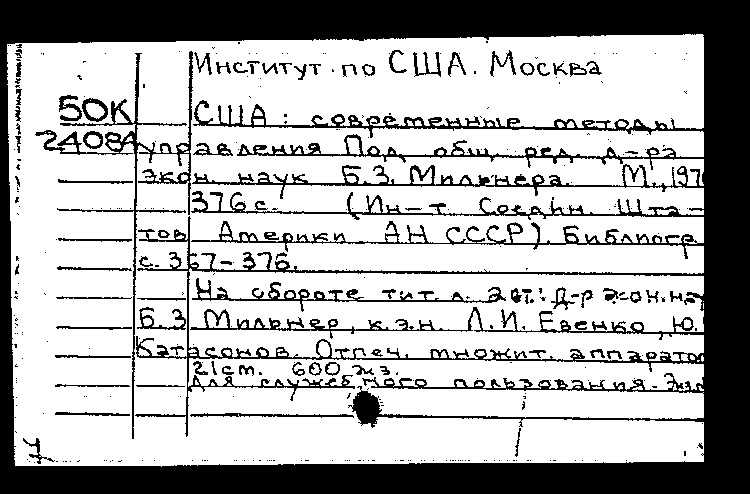 Институт по США. Москва
50К США: современные методы
24084 управления Под общ. ред. д-ра
экон. наук Б.З. Мильнера. М., 197
376 с. (Ин-т Соедин. Шта-
тов Америки АН СССР). Библиогр.
с. 367-376.
На обороте тит. л. авт.: Д-р экон. нау
Б.З Мильнер, к.э.н. Л.И. Евенко, Ю.
Катасонов. Отпеч. множит. аппарато
21см. 600 экз.
Для служебного пользования. Экз
7